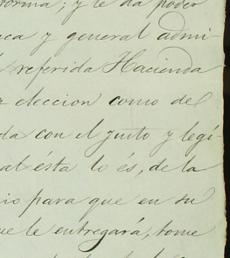 forma; y le da poder
ca y general admi-
referida Hacienda
eleccion como de
da con el justo y legí-
al ésta lo és, de la
io para que en su
ue le entregará, tome